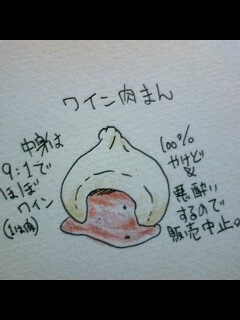 ワイン肉まん
中身は
9:1で
ほぼ
ワイン
(1は肉)
100%
やけど&
悪酔い
するので
販売中止。